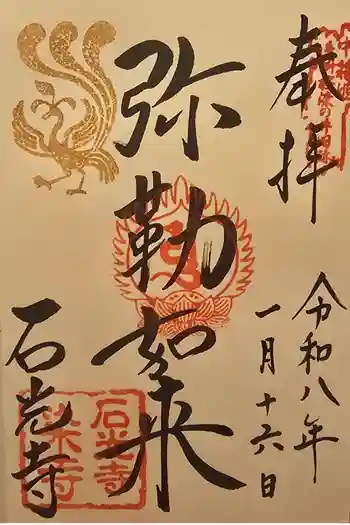 奉拝
令和八年
一月十六日
弥勒如来
石光寺
石光寺